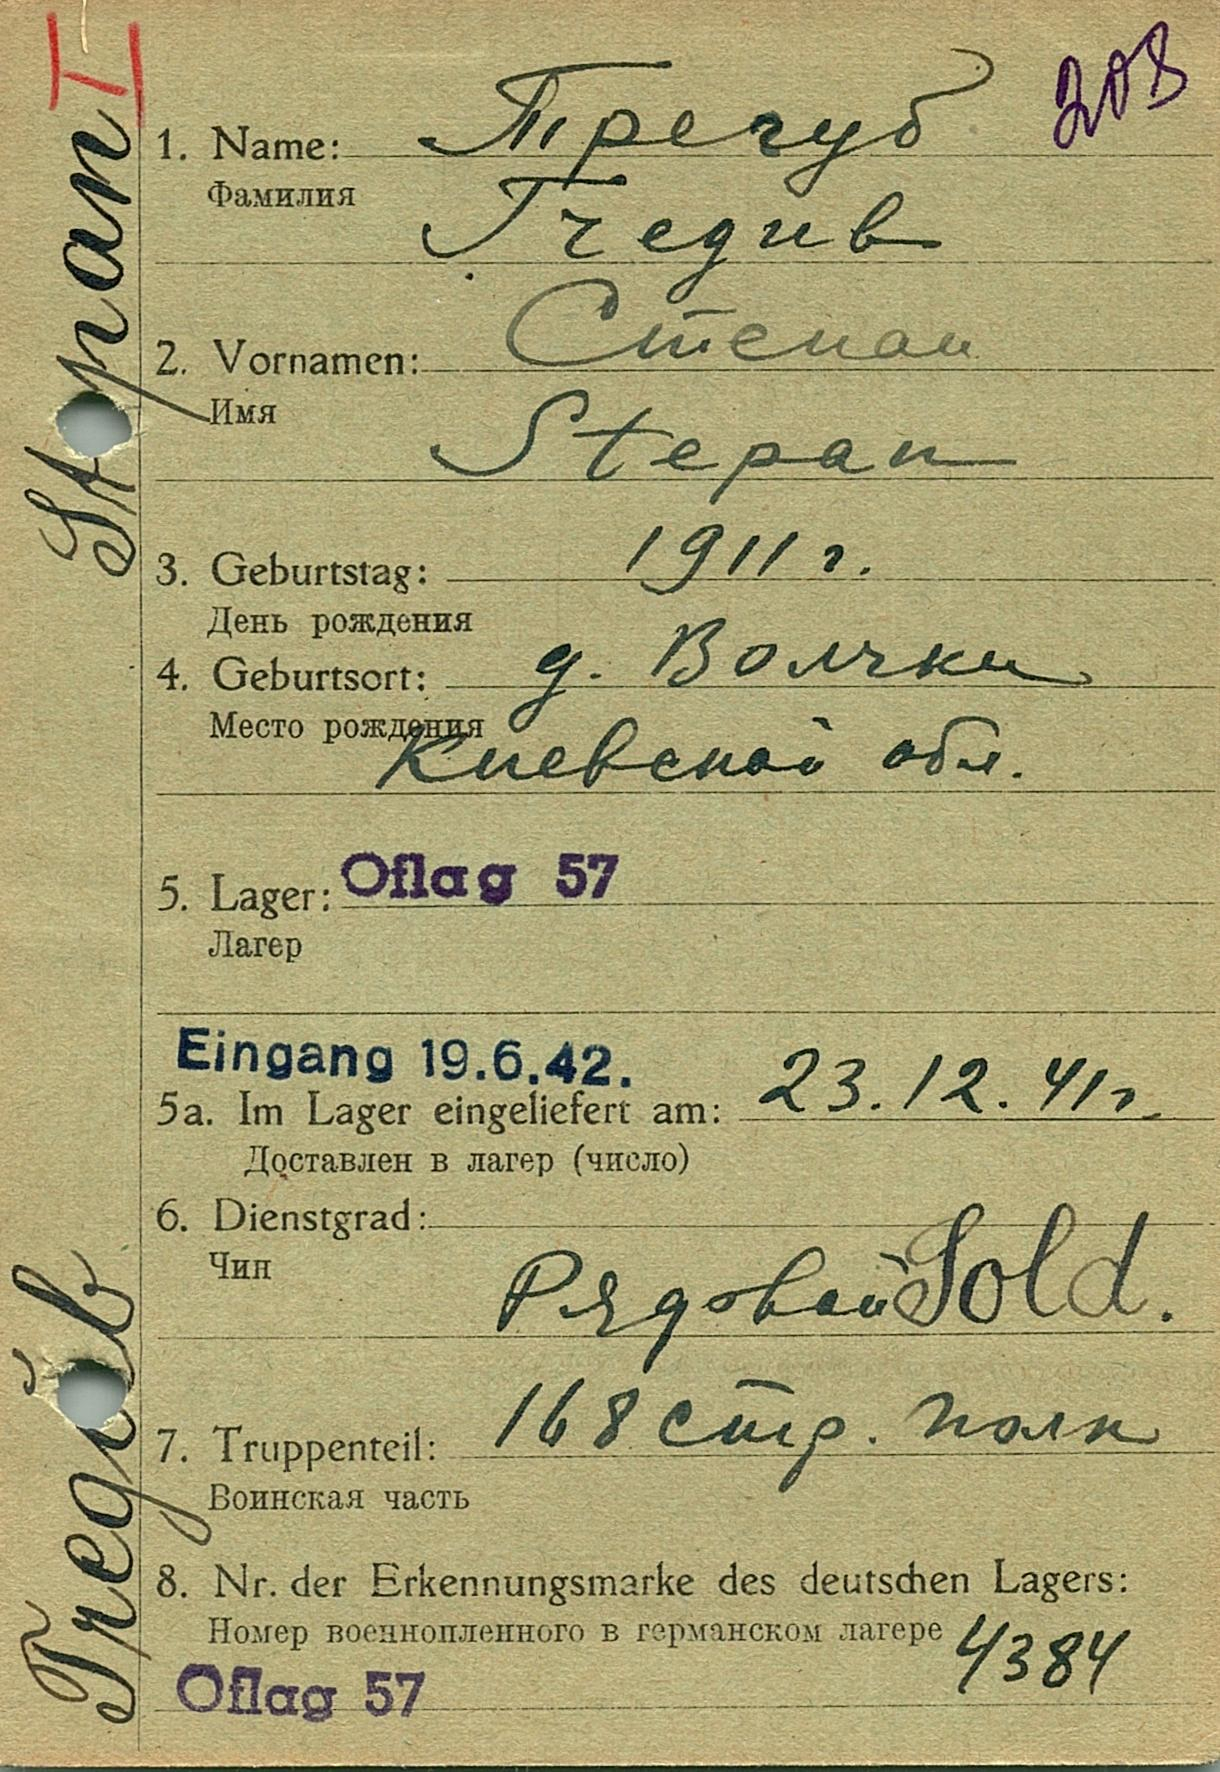 I
208
1. Name: Трегуб
Фамилия
Tregub
2. Vornamen: Степан
Имя
Stepan
3. Geburtstag: 1911 г.
День рождения
4. Geburtsort: д. Волчки
Место рождения
Киевской обл.
5. Lager: Oflag 57
Лагер
Eingang 19.6.42.
5a. Im Lager eingeliefert am: 23.12.41г.
Доставлен в лагер (число)
6. Dienstgrad:
Чин
Рядовой Sold.
7. Truppenteil: 168 стр. полк
Воинская часть
8. Nr. der Erkennungsmarke des deutschen Lagers:
Номер военнопленного в германском лагере 4384
Oflag 57
Tregŭb Stepan